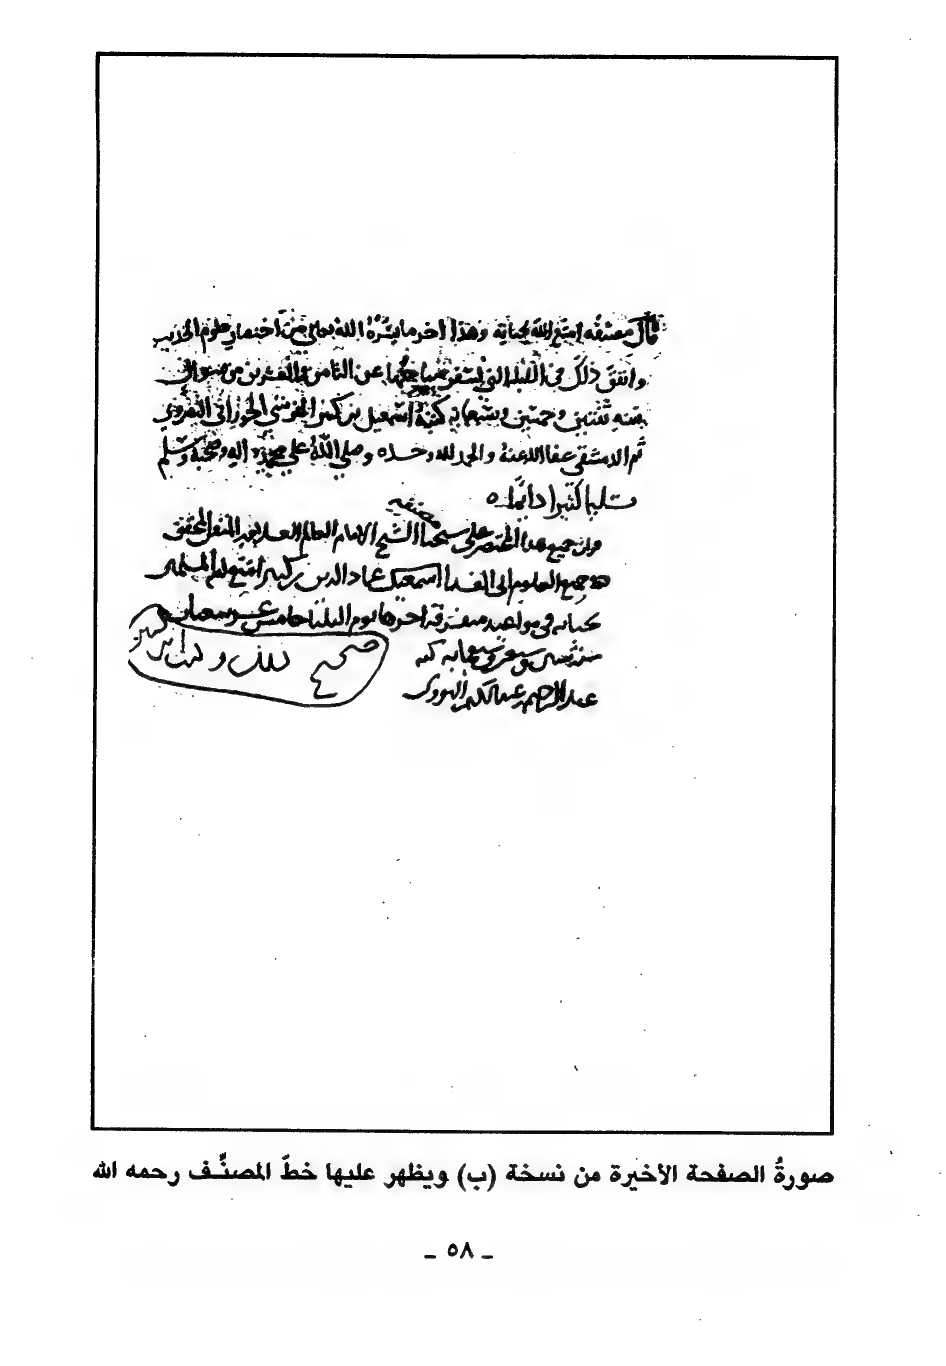 قال مصنفه امتع الله بحياته وهذا اخر ما يسره الله تعالى من اختصار علوم الحديث
واتفق ذلك في الليلة التي يسفر صباحها عن الثامن والعشرين من شوال
سنة ثنتين وخمسين وسبعمائة كتبه اسمعيل بن كثير القرشي
ثم الدمشقي عفا الله عنه والحمد لله وحده وصلى الله على محمد واله وصحبه وسلم
تسليما كثيرا دائما
جميع هذا المختصر على مصنفه شيخنا الشيخ الامام العالم المحقق
جميع العلوم ابي الفدا اسمعيل عماد الدين بن كثير امتع الله المسلمين
بحياته في مواعيد متفرقة اخرها يوم خامس عشر
سنة وسبعمائة كتبه
عبد الرحيم
صحيح ذلك وكتب ابن كثير
صورةُ الصفحة الأخيرة من نسخة (ب) ويظهر عليها خطّ المصنِّف رحمه الله
ـ ٥٨ ـ